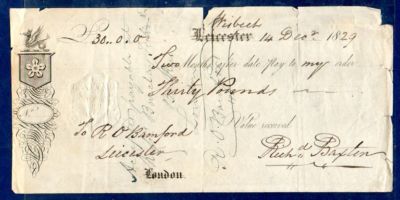 Wisbech
£30..0..0 Leicester 14 Decr 1829
Two Months after date Pay to my order
Thirty Pounds
Value received
To R O Bamford
Leicester Richd Baxter
London.